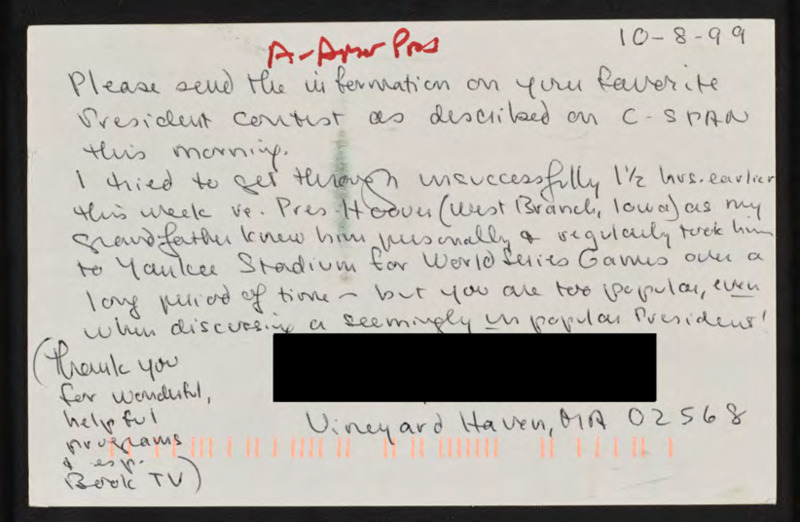 10-8-99
A-Amer Pres
Please send the information on your favorite
President contest as described on C-SPAN
this morning.
I tried to get through unsuccessfully 1½ hrs. earlier
this week re. Pres. Hoover (West Branch, Iowa) as my
grandfather knew him personally & regularly took him
to Yankee Stadium for World Series Games over a
long period of time - but you are too popular, even
when discussing a seemingly unpopular President!
(Thank you
for wonderful,
helpful
programs
& esp.
Book TV)
Vineyard Haven, MA 02568